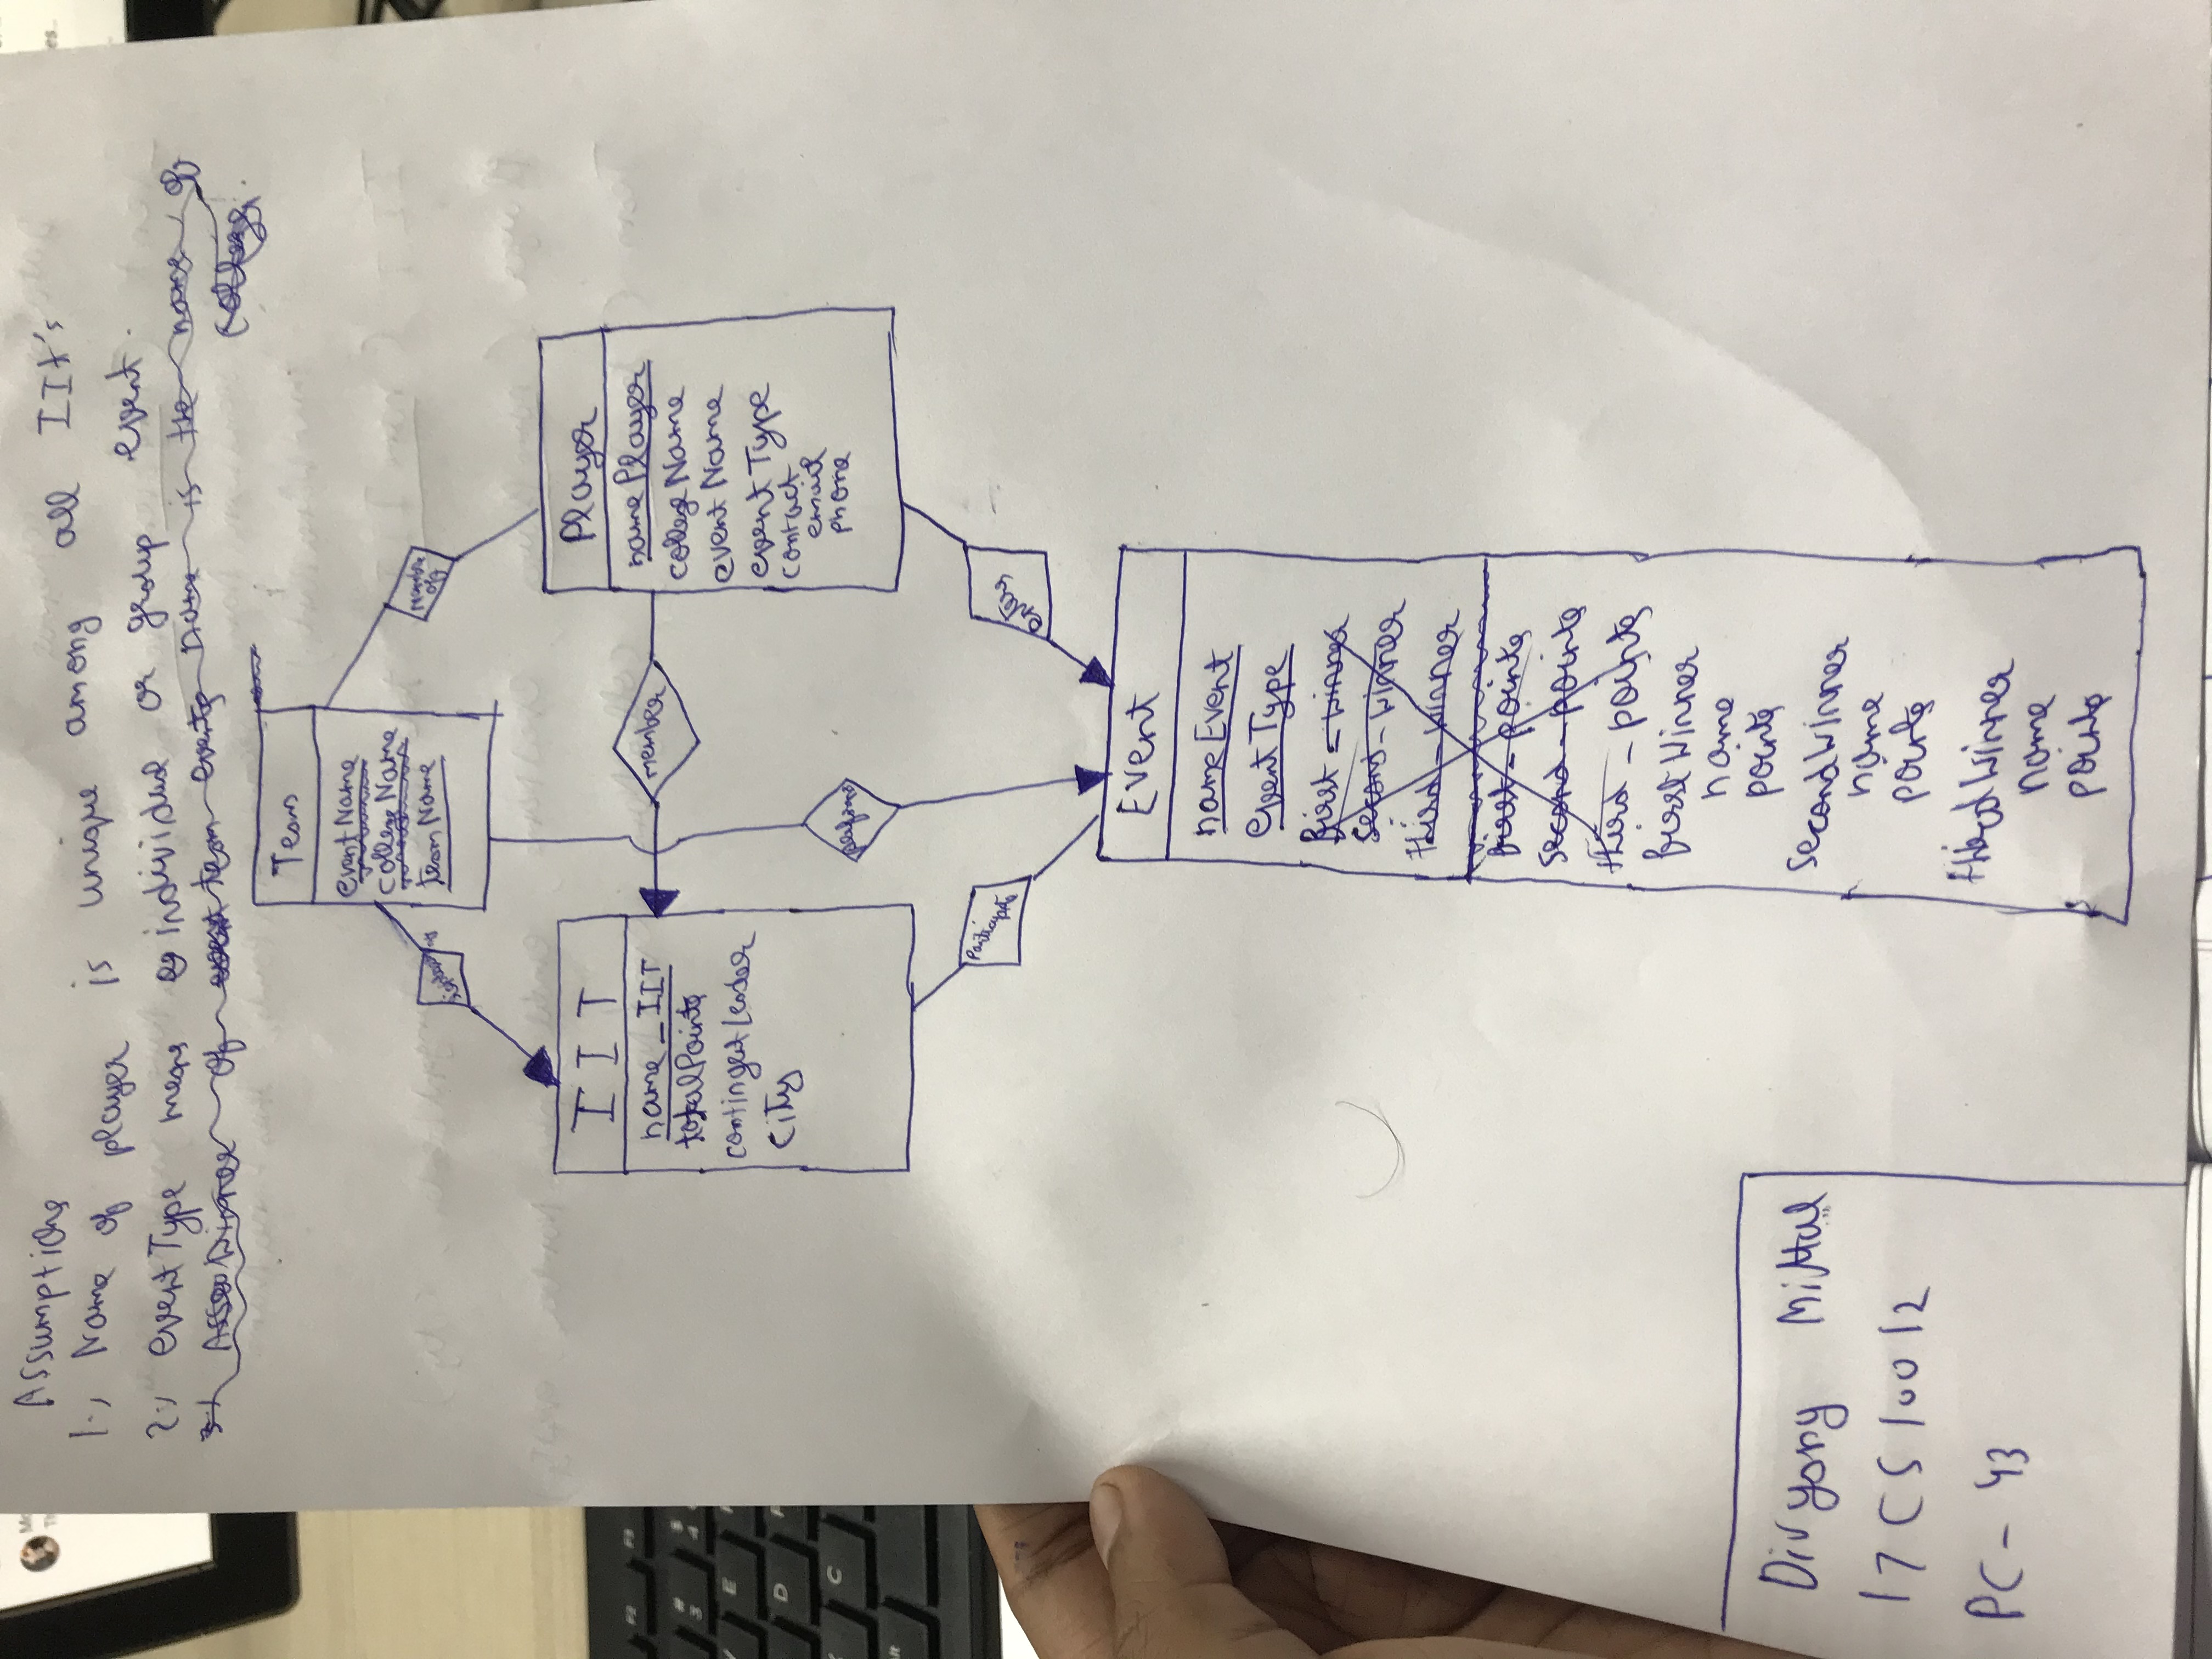 Assumptions
1.) Name of player is unique among all IIT's
2.) event Type means individual or group event.
3.) Winner of event team events name is the name of
college.
Team
eventName
collegeName
teamName
Member
of
IIT
name_IIT
totalPoints
contingetLeader
City
member
Player
namePlayer
collegeName
eventName
eventType
contact
email
phone
performs
Participate
enters
Event
nameEvent
eventType
first_winner
Second_winner
third_winner
first_points
second_points
third_points
firstWinner
name
points
SecondWinner
name
points
thirdWinner
name
points
Divyang Mittal
17CS10012
PC-43
F2
F3
#
3
$
4
E
D
C